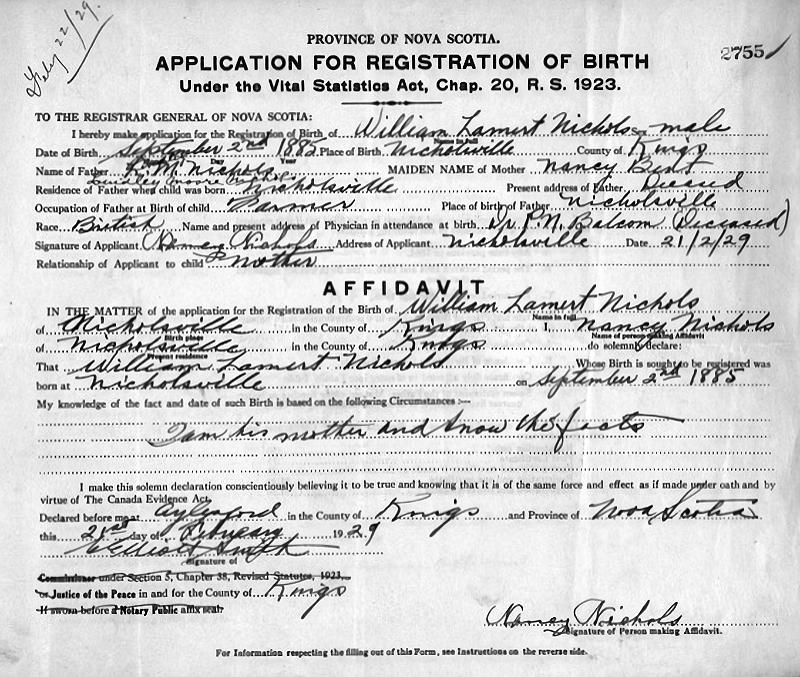 Feby 22/29.
PROVINCE OF NOVA SCOTIA.
2755
APPLICATION FOR REGISTRATION OF BIRTH
Under the Vital Statistics Act, Chap. 20, R. S. 1923.
TO THE REGISTRAR GENERAL OF NOVA SCOTIA:
I hereby make application for the Registration of Birth of William Lamert Nichols Sex male
Name in full
Date of Birth September 2nd 1885 Place of Birth Nicholsville County of Kings
Month Day Year
Name of Father R. M. Nichols MAIDEN NAME of Mother Nancy Bent
Residence of Father when child was born Nicholsville Present address of Father Deceased
Occupation of Father at Birth of child Farmer Place of birth of Father Nicholsville
Race British Name and present address of Physician in attendance at birth Dr P.N. Balcom (Deceased)
Signature of Applicant Nancy Nichols Address of Applicant Nicholsville Date 21/2/29
Relationship of Applicant to child mother
AFFIDAVIT
IN THE MATTER of the application for the Registration of the Birth of William Lamert Nichols
Name in full
of Nicholsville in the County of Kings I, Nancy Nichols
Birth place Name of person making Affidavit
of Nicholsville in the County of Kings do solemnly declare:
Present residence
That William Lamert Nichols Whose Birth is sought to be registered was
born at Nicholsville on September 2nd 1885
My knowledge of the fact and date of such Birth is based on the following Circumstances :—
I am his mother and know the facts
I make this solemn declaration conscientiously believing it to be true and knowing that it is of the same force and effect as if made under oath and by
virtue of The Canada Evidence Act.
Declared before me at Aylesford in the County of Kings and Province of Nova Scotia
this 21st day of February 1929
Elliott Smith
Signature of
Commissioner under Section 5, Chapter 38, Revised Statutes, 1923,
or Justice of the Peace in and for the County of Kings
If sworn before a Notary Public affix seal
Nancy Nichols
Signature of Person making Affidavit.
For Information respecting the filling out of this Form, see Instructions on the reverse side.